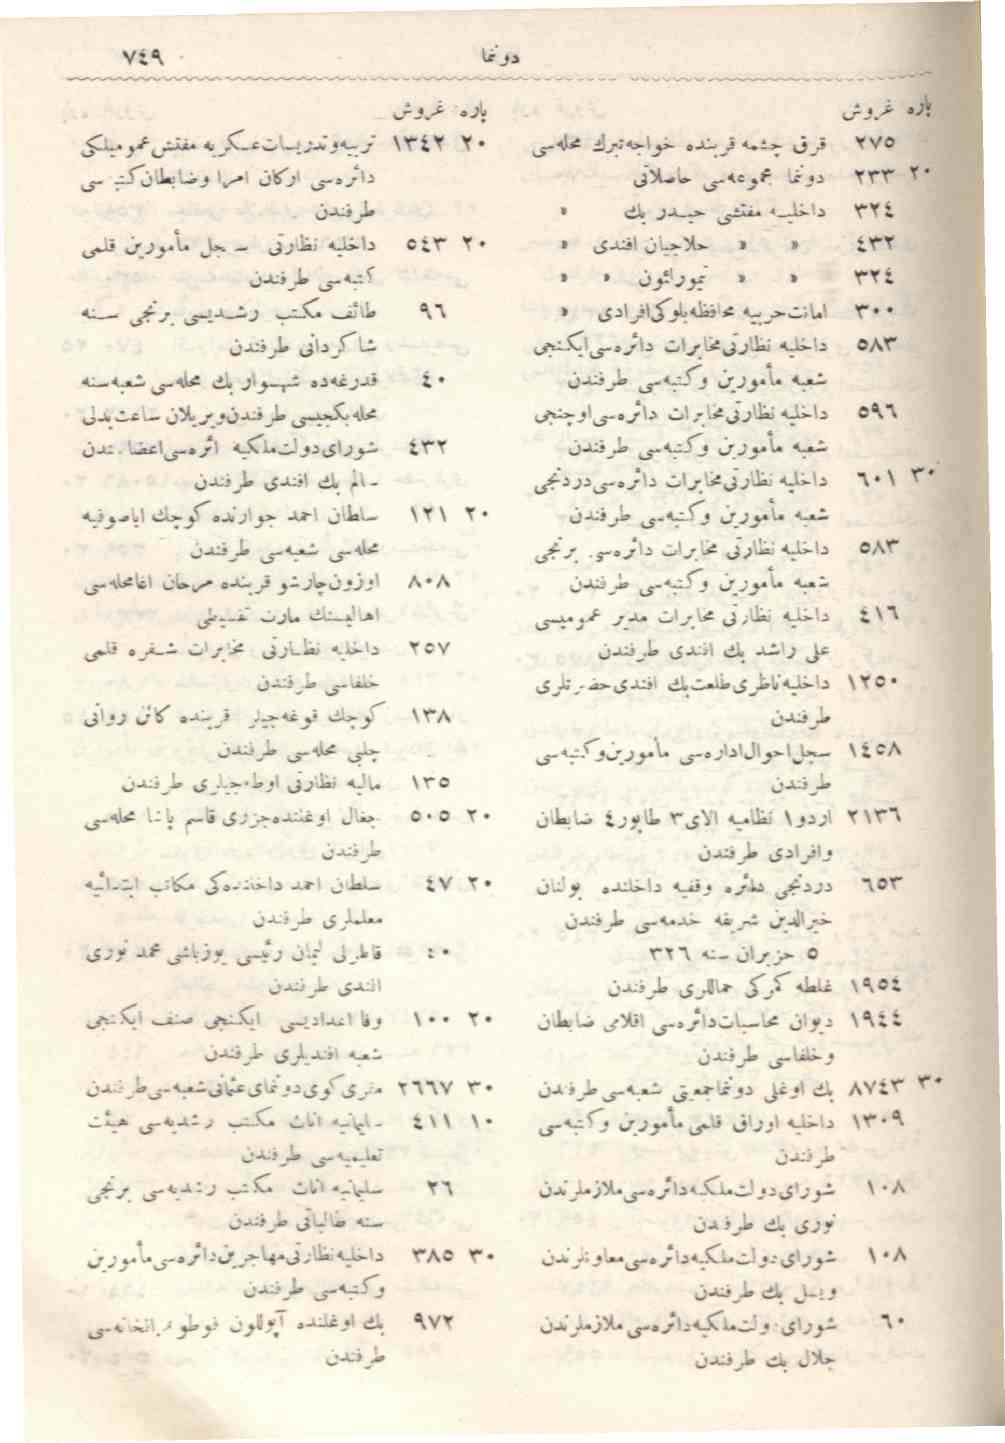 دونما ٧٤٩
پاره غروش
٢٧٥ قرق چشمه قربنده خواجه تبرك محله‌سی
٢٠ ٢٣٣ دونما مجموعه‌سی حاصلاتی
٣٢٤ داخلیه مفتشی حیدر بك »
٤٣٢ » » حلاجیان افندی »
٣٢٤ » » » »
٣٠٠ امانت حربیه محافظه بلوكی افرادی »
٥٨٣ داخلیه نظارتی مخابرات دائره‌سی ایكنجی
شعبه مأمورین وكتبه‌سی طرفندن
٥٩٦ داخلیه نظارتی مخابرات دائره‌سی اوچنجی
شعبه مأمورین وكتبه‌سی طرفندن
٣٠ ٦٠١ داخلیه نظارتی مخابرات دائره‌سی دردنجی
شعبه مأمورین وكتبه‌سی طرفندن
٥٨٣ داخلیه نظارتی مخابرات دائره‌سی برنجی
شعبه مأمورین وكتبه‌سی طرفندن
٤١٦ داخلیه نظارتی مخابرات مدیر عمومیسی
علی راشد بك افندی طرفندن
١٢٥٠ داخلیه ناظری طلعت بك افندی حضرتلری
طرفندن
١٤٥٨ سجل احوال اداره‌سی مأمورین وكتبه‌سی
طرفندن
٢١٣٦ اردو ١ نظامیه الای ٣ طابور ٤ ضابطان
وافرادی طرفندن
٦٥٣ دردنجی دائره وقفیه داخلنده بولنان
خیرالدین شریفه خدمه‌سی طرفندن
٥ حزیران سنه ٣٢٦
١٩٥٤ غلطه كمركی حماللری طرفندن
١٩٤٤ دیوان محاسبات دائره‌سی اقلامی ضابطان
وخلفاسی طرفندن
٣٠ ٨٧٤٣ بك اوغلی دونما جمعیتی شعبه‌سی طرفندن
١٣٠٩ داخلیه اوراق قلمی مأمورین وكتبه‌سی
طرفندن
١٠٨ شورای دولت ملكیه دائره‌سی ملازملرندن
نوری بك طرفندن
١٠٨ شورای دولت ملكیه دائره‌سی معاونلرندن
بك طرفندن
٦٠ شورای دولت ملكیه دائره‌سی ملازملرندن
جلال بك طرفندن
پاره غروش
٢٠ ١٣٤٢ تربیه وتدریسات عسكریه مفتش عمومیلكی
دائره‌سی اركان امرا وضابطان كتبه‌سی
طرفندن
٢٠ ٥٤٣ داخلیه نظارتی سجل مأمورین قلمی
كتبه‌سی طرفندن
٩٦ طائف مكتب رشدیسی برنجی سنه
شاكردانی طرفندن
٤٠ قدرغه‌ده شهسوار بك محله‌سی شعبه‌سنه
محله بكجیسی طرفندن ویریلان ساعت بدلی
٤٣٢ شورای دولت ملكیه دائره‌سی اعضاسندن
سالم بك افندی طرفندن
٢٠ ١٢١ سلطان احمد جوارنده كوچك ایاصوفیه
محله‌سی شعبه‌سی طرفندن
٨٠٨ اوزون چارشو قربنده مرجان اغا محله‌سی
اهالیسنك مارت تقسیطی
٢٥٧ داخلیه نظارتی مخابرات شفره قلمی
خلفاسی طرفندن
١٣٨ كوچك قوغه‌جیلر قربنده كائن روانی
چلبی محله‌سی طرفندن
١٣٥ مالیه نظارتی اوطه‌جیلری طرفندن
٢٠ ٥٠٥ جغال اوغلنده جزری قاسم پاشا محله‌سی
طرفندن
٢٠ ٤٧ سلطان احمد داخلنده‌كی مكاتب ابتدائیه
معلملری طرفندن
٤٠ لیمان رئیسی یوزباشی محمد نوری
افندی طرفندن
٢٠ ١٠٠ وفا اعدادیسی ایكنجی صنف ایكنجی
شعبه افندیلری طرفندن
٣٠ ٢٦٦٧ مقری كوی دونمای عثمانی شعبه‌سی طرفندن
١٠ ٤١١ سلیمانیه اناث مكتب رشدیه‌سی هیئت
تعلیمیه‌سی طرفندن
٢٦ سلیمانیه اناث مكتب رشدیه‌سی برنجی
سنه طالباتی طرفندن
٣٠ ٣٨٥ داخلیه نظارتی مهاجرین دائره‌سی مأمورین
وكتبه‌سی طرفندن
٩٧٢ بك اوغلنده آپوللون فوطوغرافخانه‌سی
طرفندن